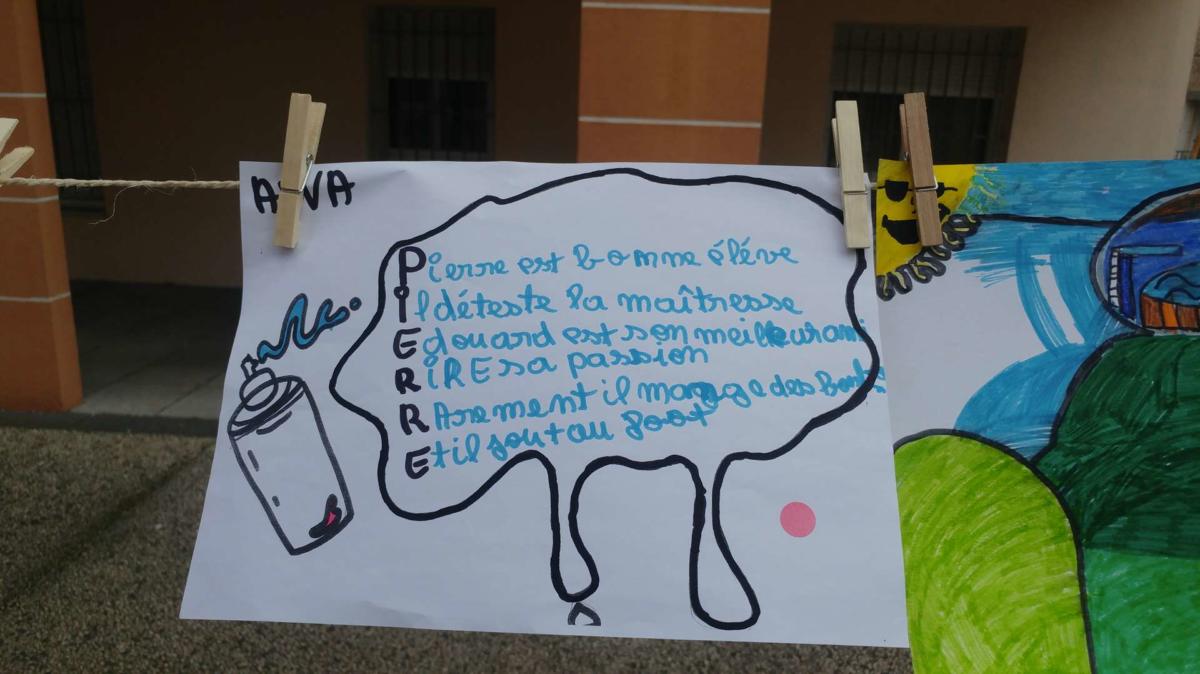 AVA
Pierre est bonne éléve
Il déteste la maîtresse
Edouard est son meilleur ami
RiRE sa passion
RArement il mange des Bonbs
Et il jout au foot